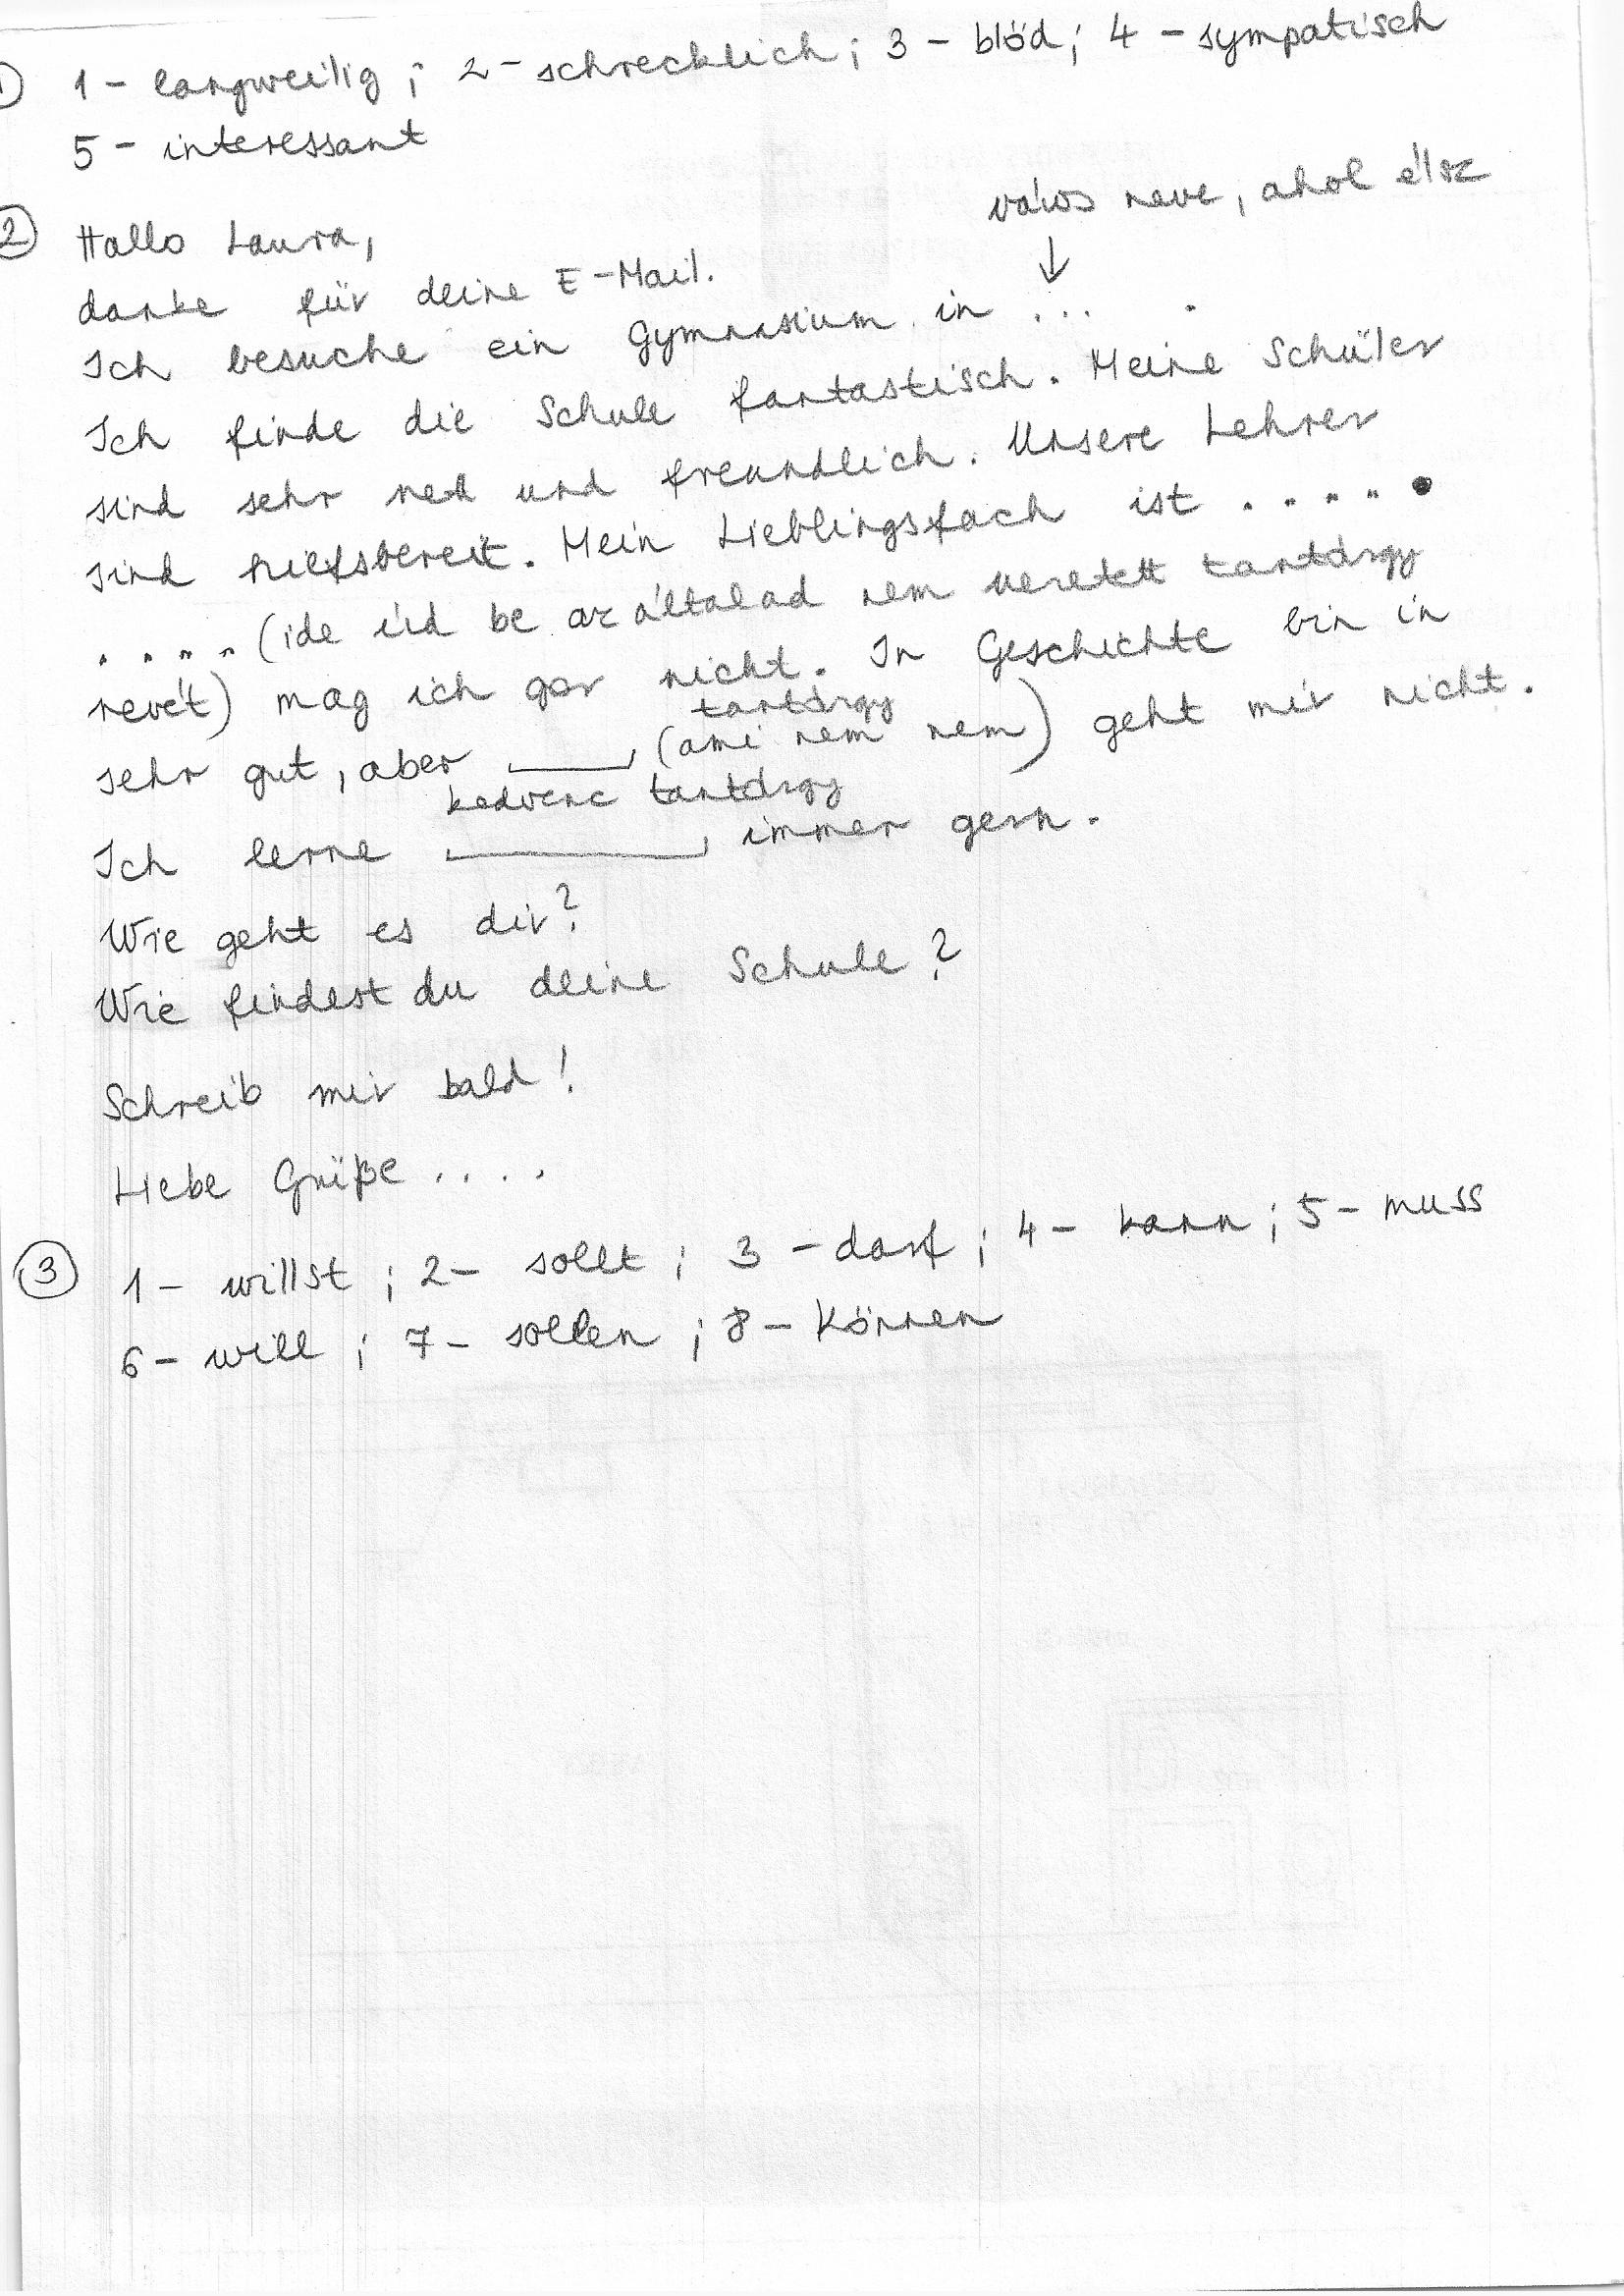 1) 1 - langweilig ; 2 - schrecklich ; 3 - blöd ; 4 - sympatisch
5 - interessant
város neve, ahol élsz
↓
2) Hallo Laura,
danke für deine E-Mail.
Ich besuche ein Gymnasium in ... .
Ich finde die Schule fantastisch. Meine Schüler
sind sehr nett und freundlich. Unsere Lehrer
sind hilfsbereit. Mein Lieblingsfach ist .....
.... (ide írd be az általad nem tantárgy
nevét) mag ich gar nicht. In Geschichte bin in
tantárgy
sehr gut, aber ____ (ami nem nem) geht mir nicht.
kedvenc tantárgy
Ich lerne ____ immer gern.
Wie geht es dir?
Wie findest du deine Schule?
Schreib mir bald!
Liebe Grüße ....
3 1 - willst ; 2 - sollt ; 3 - darf ; 4 - kann ; 5 - muss
6 - will ; 7 - sollen ; 8 - können